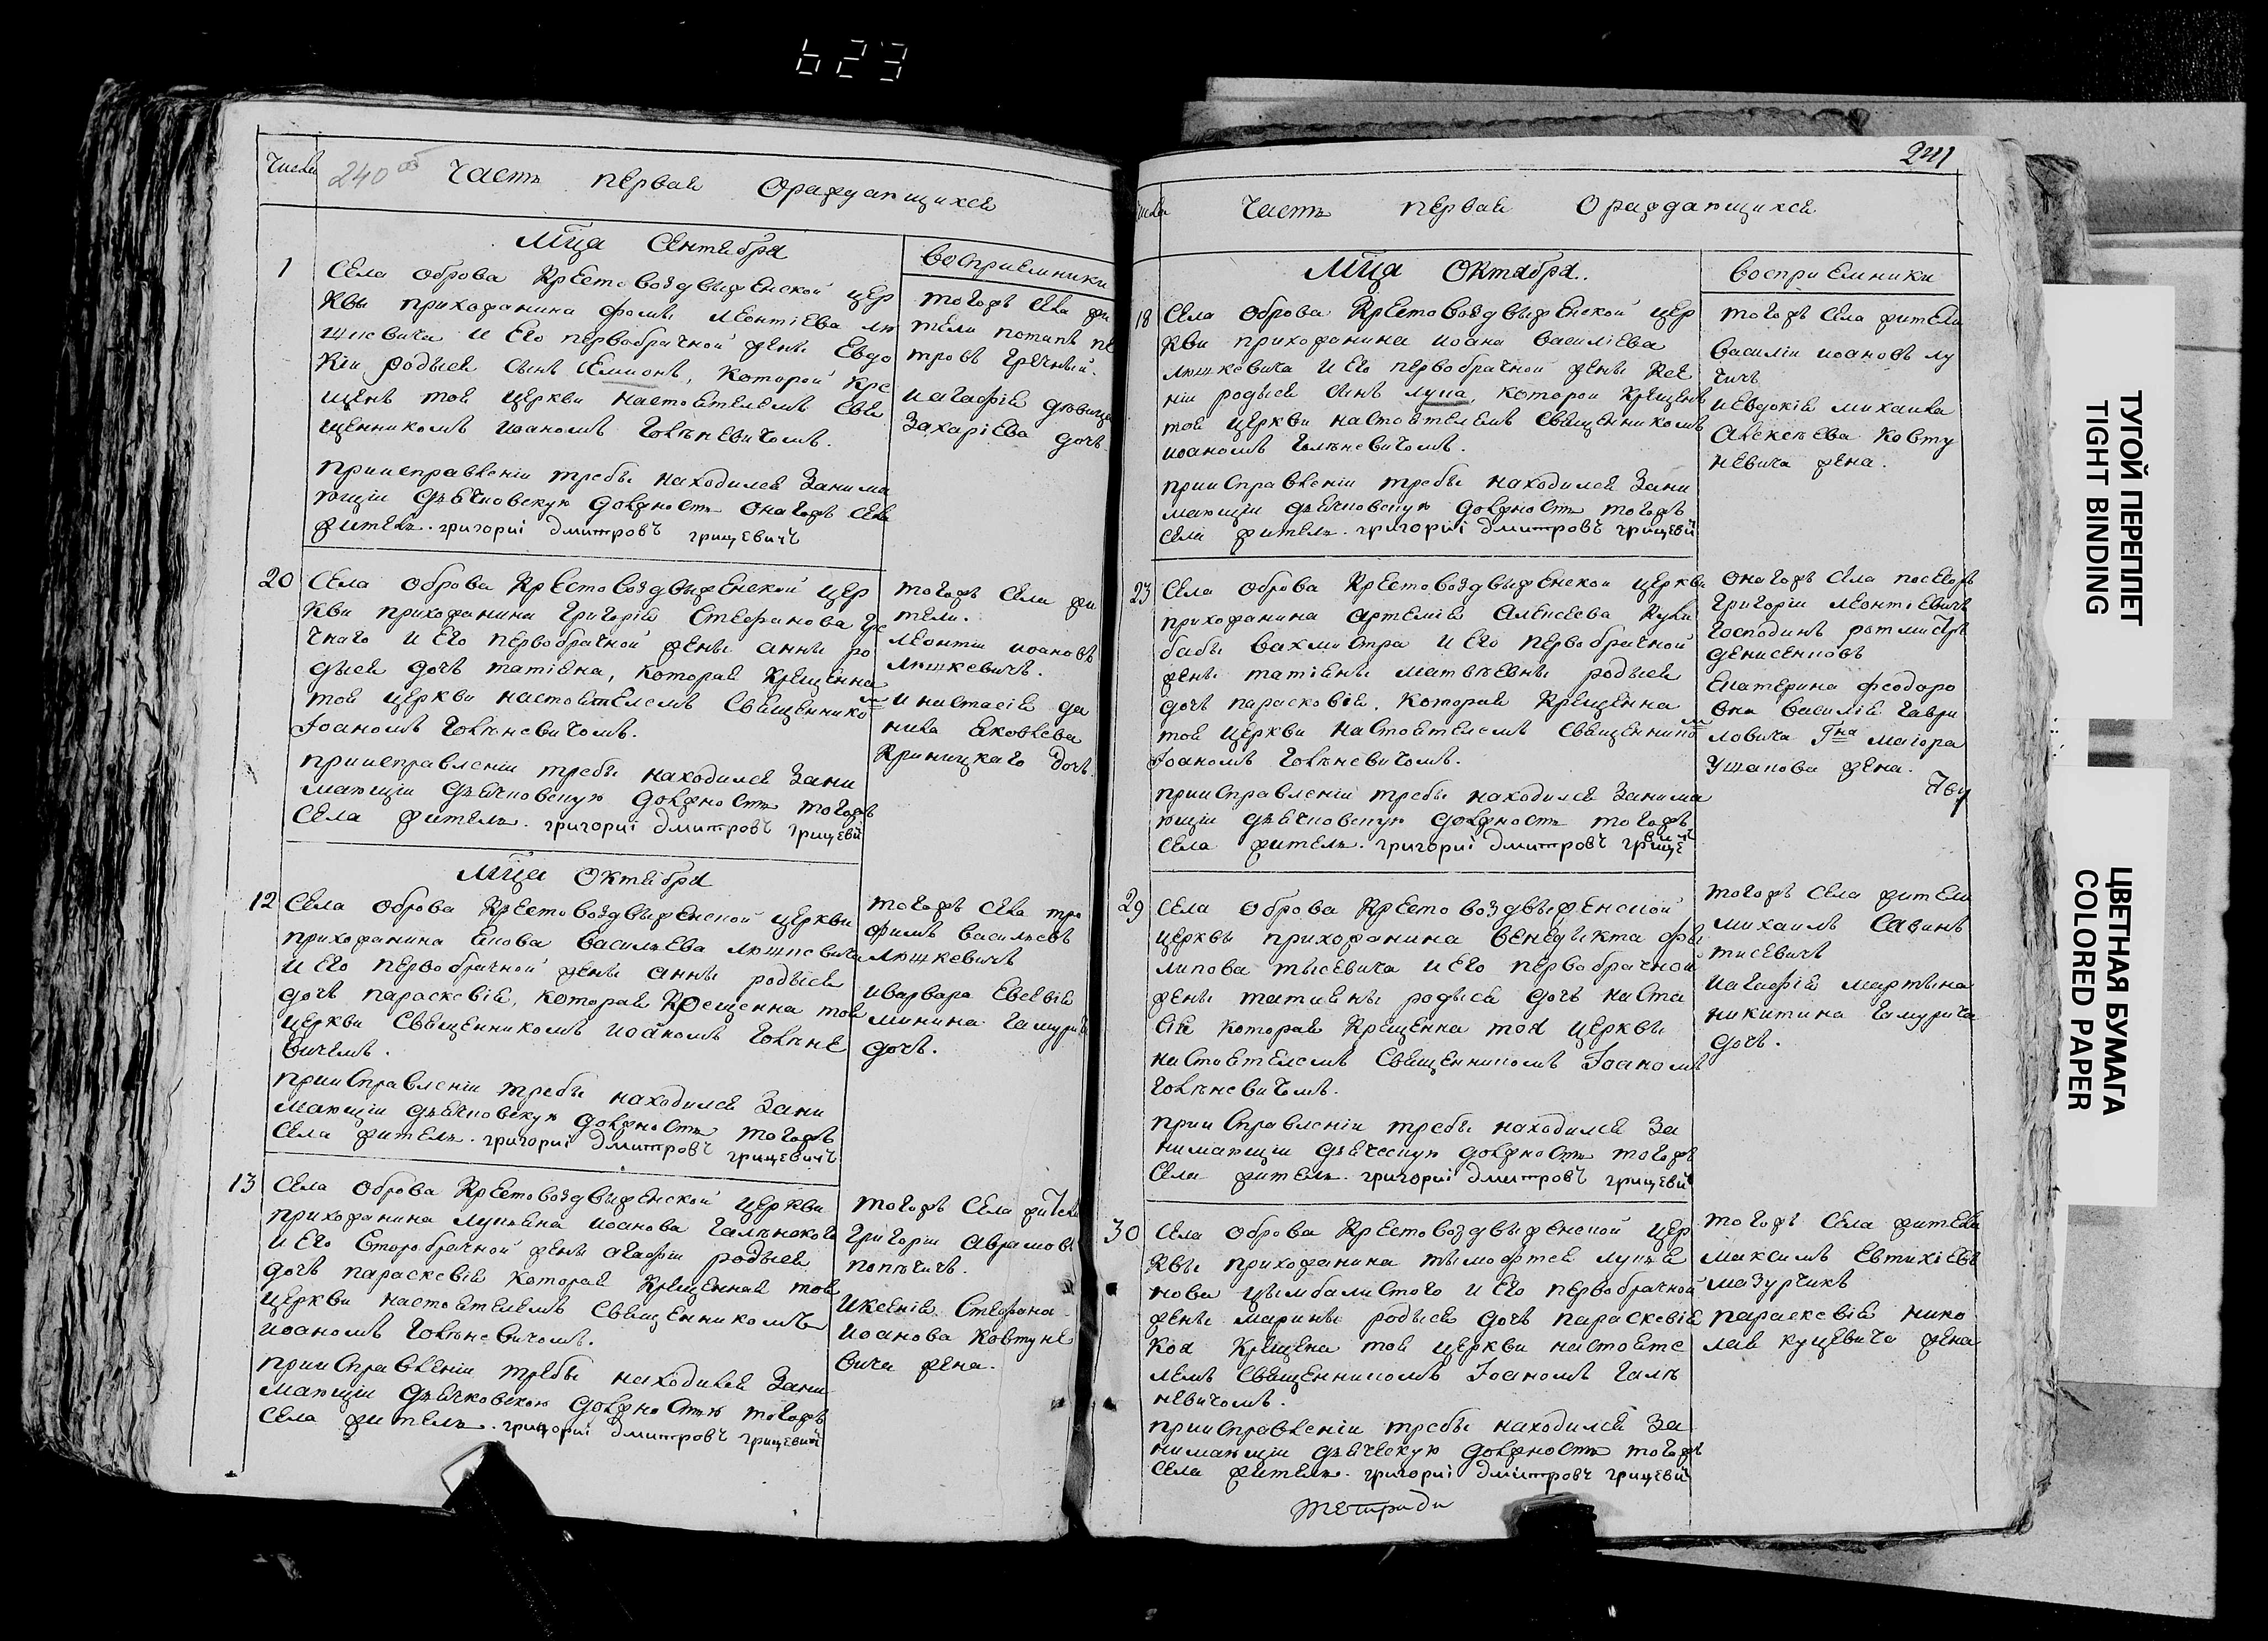 623
Числа
240 об
Часть первая О раждающихся
Мца Сентября
Восприемники
1
Села оброва Крестовоздвыженской цер
квы прихожанина фомы леонтіева лю
шкевича и Его первобрачной жены Евдо
кіи родыся сынъ Семионъ, которой кре
щенъ той церкви настоятелемъ свя
щенникомъ иоаномъ Голѣневичомъ.
приисправленіи требы находился Занима
ющіи дьячковскую должность онагожъ села
жытель. григориі дмитровъ грицевичъ
тогожъ села жи
тели потапъ пе
тровъ Гречный.
и агафія дѣвица
Захаріева дочь.
20
Села оброва Крестовоздвыженской цер
кви прихожанина Григорія Стефанова Гре
чнаго и Его первобрачной жены анны ро
дыся дочь татіяна, которая крещенна
той церкви настоятелемъ священнико м
Іоаномъ Голѣневичомъ.
приисправленіи требы находился Зани
мающіи дьячковскую должность тогожъ
села житель. григориі дмитровъ грицевич
тогожъ села жи
тели.
леонтіи иоановъ
люшкевичъ.
и настасія да
нила яковлева
Криницкаго дочь.
Мца Октября
12
Села оброва Крестовоздвыженской церкви
прихожанина якова васильева люшкевича
и Его первобрачной жены анны родыся
дочь параскевія, которая Крещенна той
церкви Священникомъ иоаномъ Голѣне
вичемъ.
приисправленіи требы находился Зани
мающіи дьячковскую должность тогожъ
села житель. григориі дмитровъ грицевичъ
тогожъ села тро
фимъ васильевъ
люшкевичъ
и варвара Евсевія
минина Гамурич
дочь.
13
Села оброва Крестовоздвыженской церкви
прихожанина лукьяна иоанова Галѣнского
и Его второбрачной жены агафіи родыся
дочь параскевія которая Крещенная той
церкви настоятелемъ Священникомъ
иоаномъ Голѣневичомъ.
приисправленіи требы находился Зани
мающіи дьячковскою должностю тогожъ
села житель. григориі дмитровъ грицевич
тогожъ села жители
Григоріи аврамовъ
попѣчичъ.
и ксенія Стефана
иоанова ковтуне
вича жена.
241
числа
Часть первая О раждающихся
Мца Октября.
восприемники
18
Села оброва Крестовоздвыженской цер
кви прихожанина иоана василіева
люшкевича и Его первобрачной жены ксе
ніи родыся сынъ лука, которои крещенъ
той церкви настоятелемъ священникомъ
иоаномъ Голѣневичомъ.
приисправленіи требы находился Зани
мающіи дьячковскую должность тогожъ
села житель. григориі дмитровъ грицевич
тогожъ села жители
василіи иоановъ лу
чичъ
и евдокія михаила
алексѣева ковту
невича жена.
23
Села оброва Крестовоздвыженскои церкви
прихожанина артемія алексеева Кули
бабы вахмистра и Его первобрачной
жены татіяны матвѣевны родыся
дочь парасковія. которая крещенна
той церкви настоятелемъ священнико м
Іоаномъ Голѣневичомъ.
приисправленіи требы находился Занима
ющіи дьячковскую должность тогожъ
села житель. григориі дмитровъ грице вичъ
Онагожъ села
Григоріи леонтіевичъ
господинъ ротмистръ
денисенковъ
Екатерина феодоро
вна василія Гаври
ловича Гна маіора
Ушакова жена.
29
Села Оброва Крестовоздвыженской
церквы прихожанина венедыкта фы
липова тысевича и Его первобрачной
жены татияны родыся дочь наста
сія которая крещенна тоя церквы
настоятелемъ Священникомъ Іоаномъ
Голѣневичомъ.
приисправленіи требы находился За
нимающіи дьяческую должность тогожъ
села житель. григориі дмитровъ грицевич
тогожъ села жители
михаилъ Савинъ
тисевичъ
и агафія мартына
никитина Гамурича
дочь.
30
Села оброва Крестовоздвыженской цер
квы прихожанина тымофтея лукья
нова цымбалистого и Его первобрачной
жены марины родыся дочь параскевія
коя крещена той церкви настояте
лемъ священникомъ Іоаномъ Галѣ
невичомъ.
приисправленіи требы находился За
нимающіи дьяческую должность тогожъ
села житель. григориі дмитровъ грицевич
тогожъ села жители
максимъ Евтихіевъ
мазурчикъ
параскевія нико
лая куцевича жена
тетради
ТУГОЙ ПЕРЕПЛЕТ
TIGHT BINDING
ЦВЕТНАЯ БУМАГА
COLORED PAPER